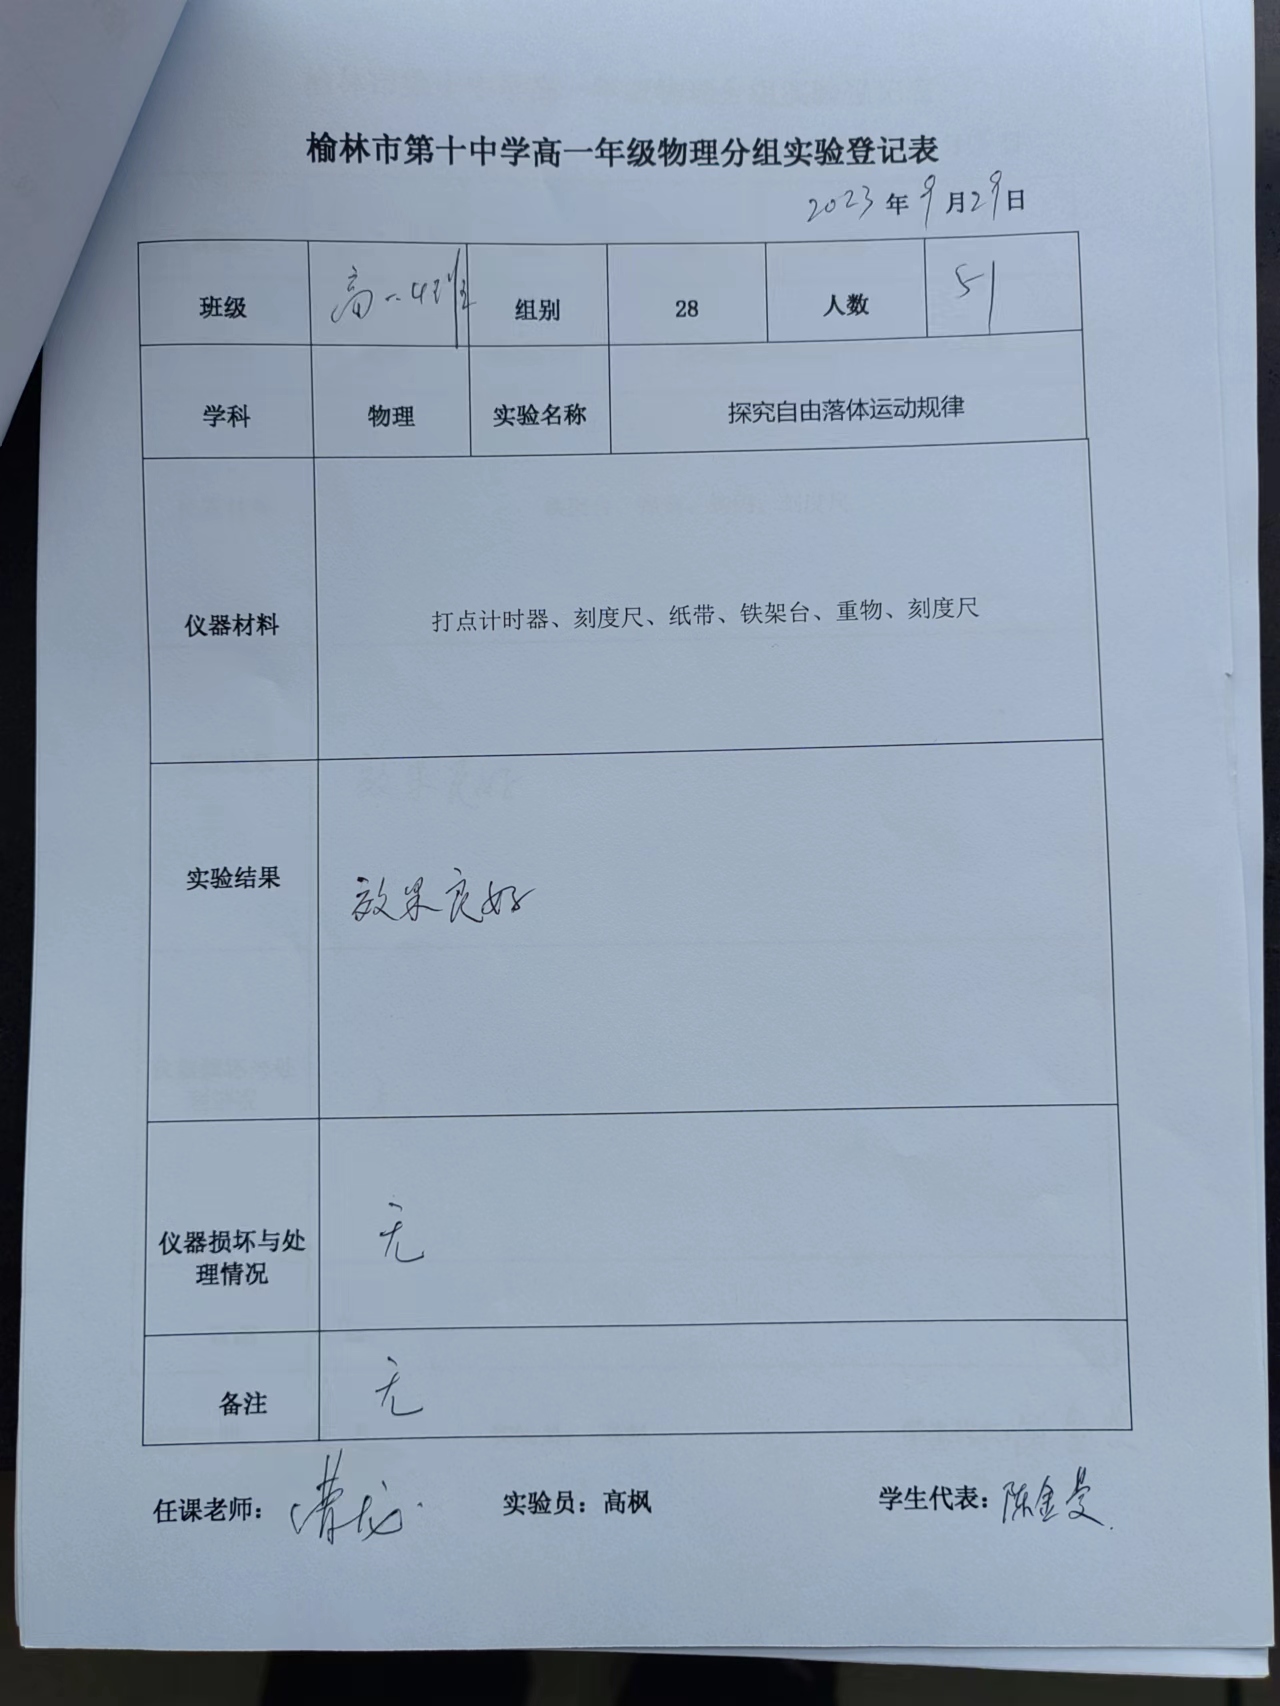 榆林市第十中学高一年级物理分组实验登记表
2023年9月29日
班级 高一.4班 组别 28 人数 51
学科 物理 实验名称 探究自由落体运动规律
仪器材料 打点计时器、刻度尺、纸带、铁架台、重物、刻度尺
实验结果 效果良好
仪器损坏与处
理情况 无
备注 无
任课老师： 实验员：高枫 学生代表：陈金曼